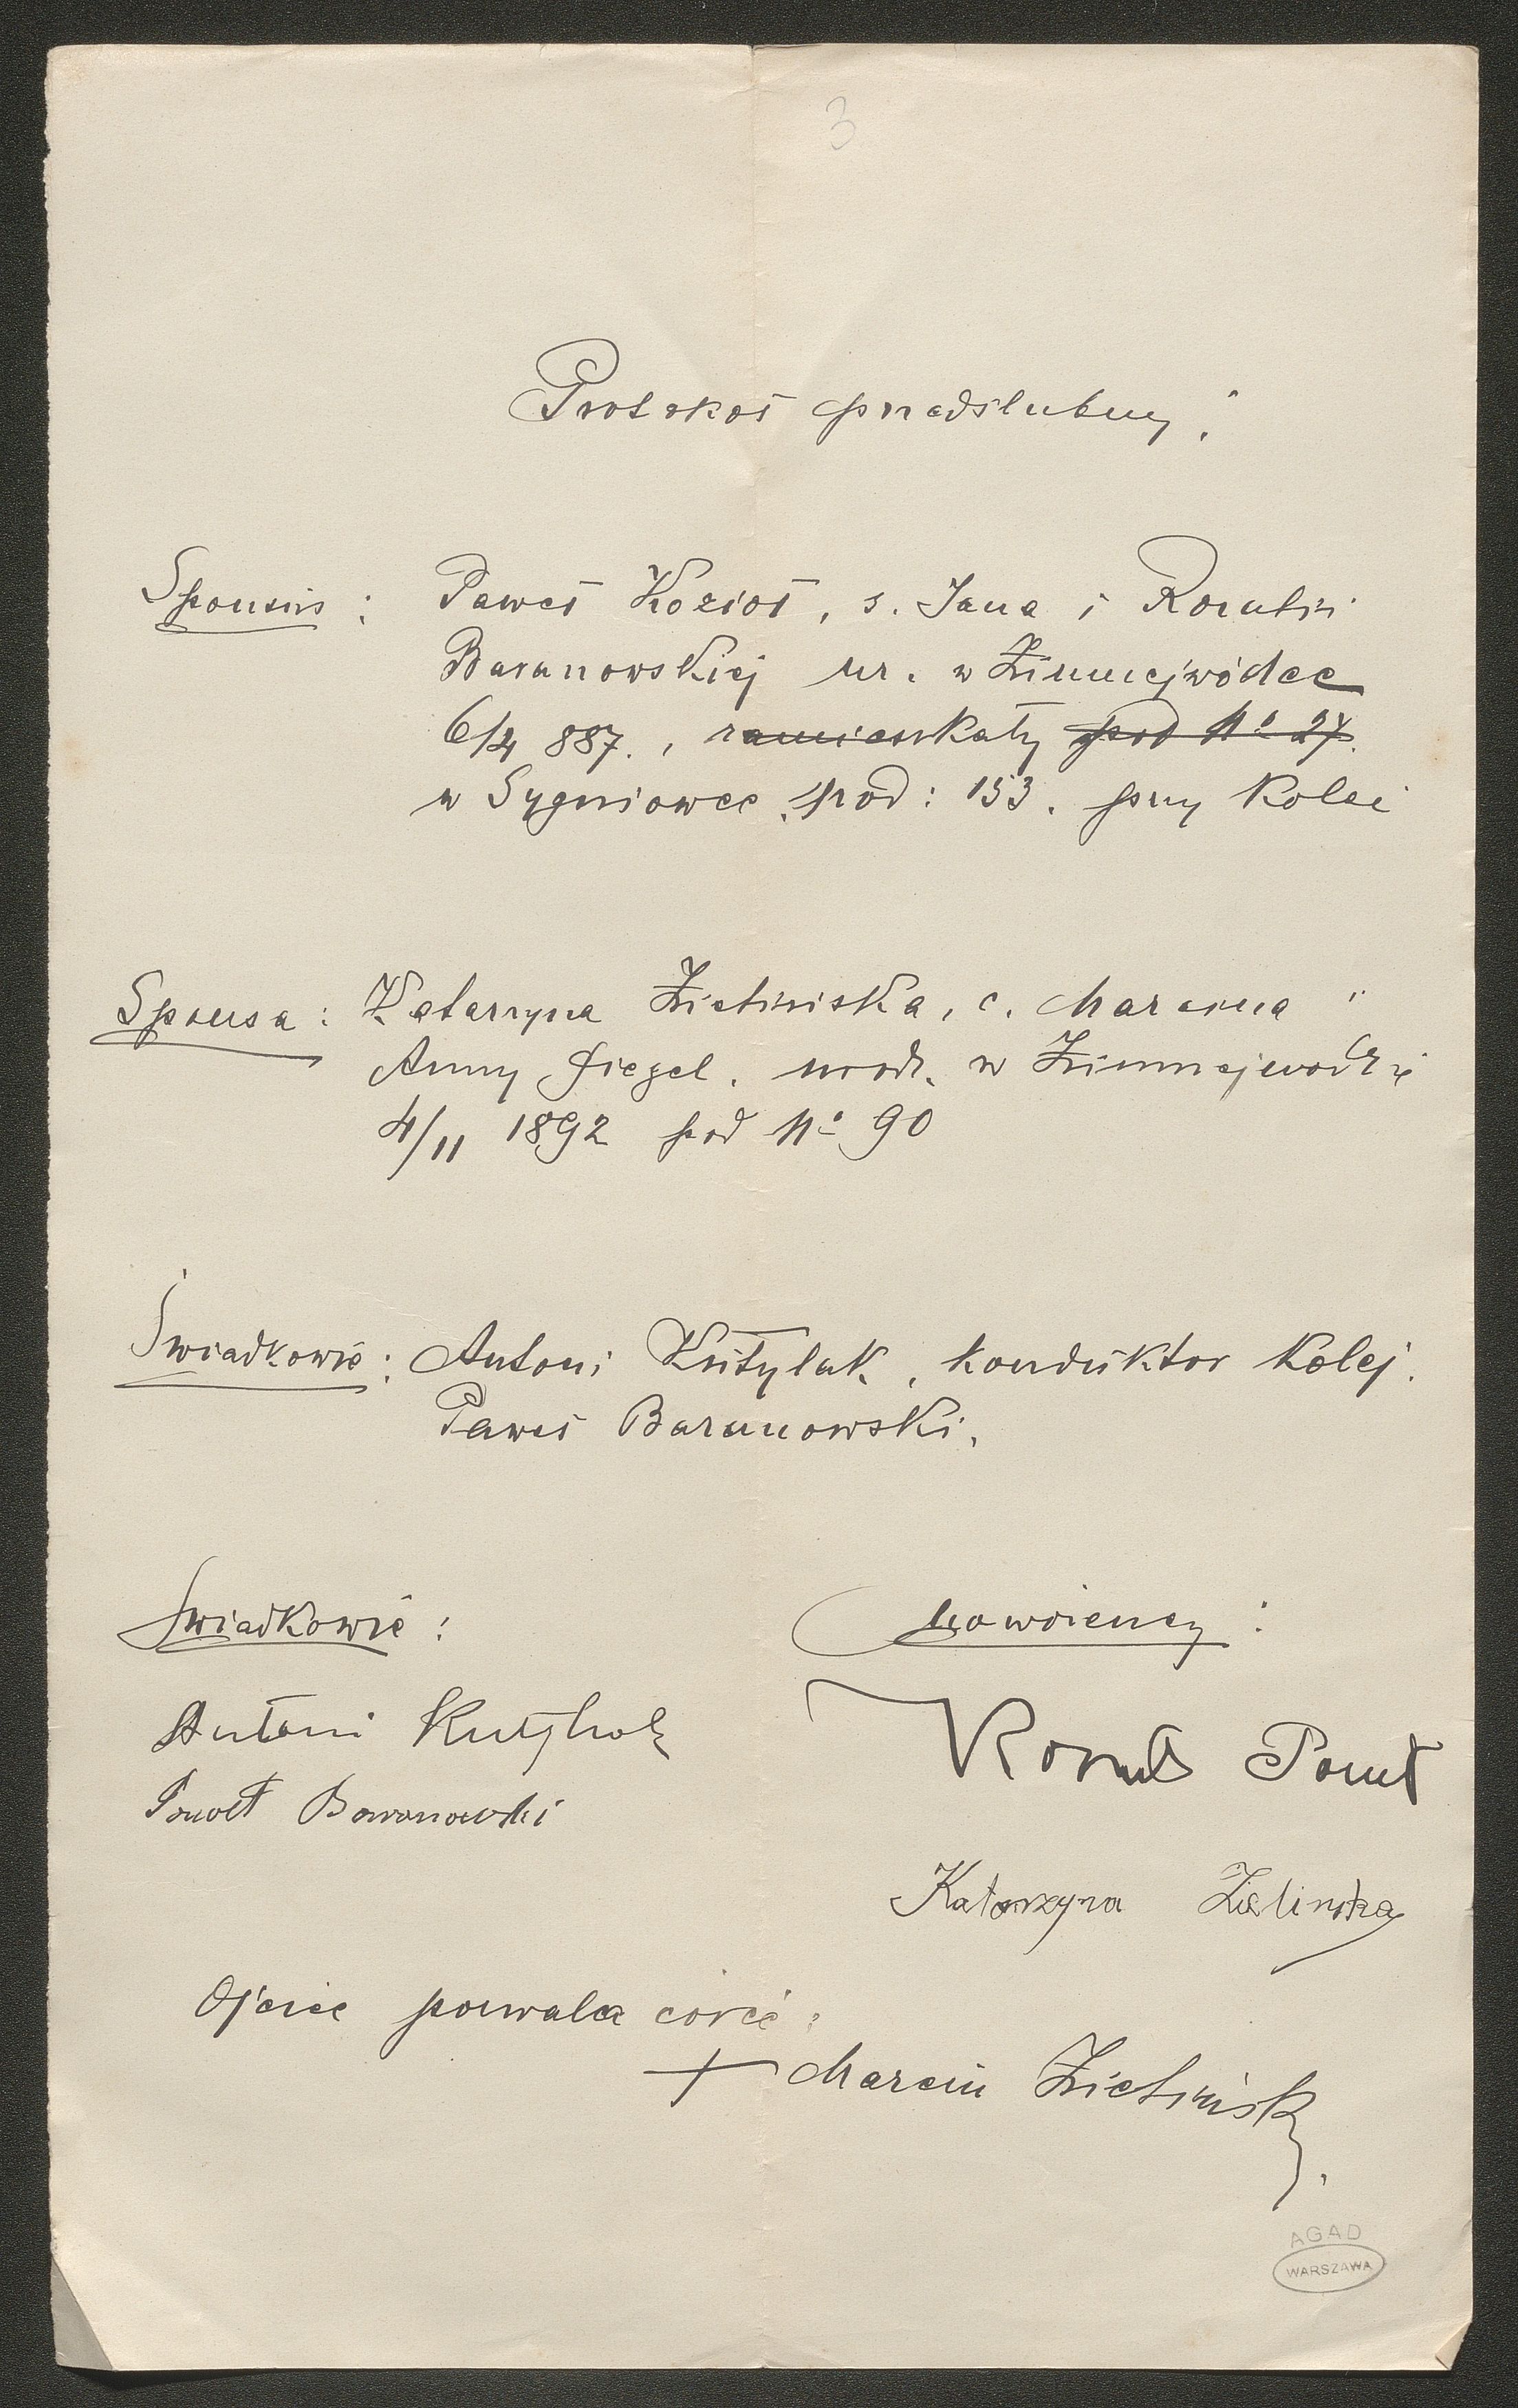 3
Protokoł przedślubny:
Sponsus: Paweł Kozioł, s. Jana i Rozalii
Baranowskiej ur. w Zimnejwódce
6/4 887., zamieszkały pod No 27.
w Sygniowce, pod: 153. przy Kolei
Sponsa: Katarzyna Zielińska, c. Marcina i
Anny Fiegel. urodz. w Zimnejwodzie
4/11 1892 pod No 90
Świadkowie: Antoni Kutylak, konduktor kolej.
Paweł Baranowski.
Świadkowie:
Nowożeńcy:
Antoni Kutylak
Kozioł Paweł
Pawełł Baranowski
Katarzyna Zielinska
Ojciec pozwala córce:
+ Marcin Zieliński.
AGAD
WARSZAWA